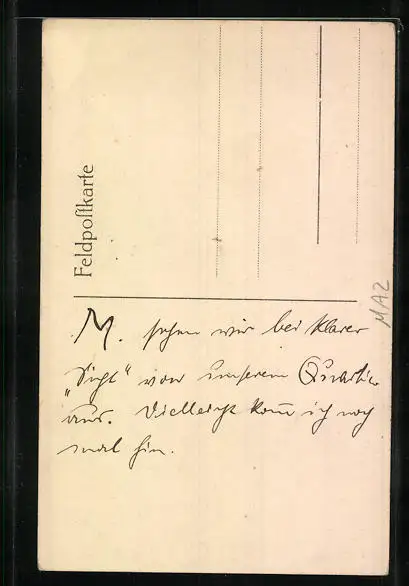 Feldpostkarte
M. sehen wir bei klarer
„Sicht" von unserem Quartier
aus. Vielleicht kom̄ ich noch
mal hin.
MAZ